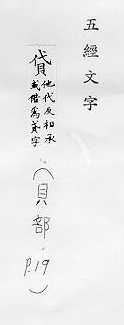 五經文字
貸
他代反相承
或借爲貣字
(貝部. P.19)